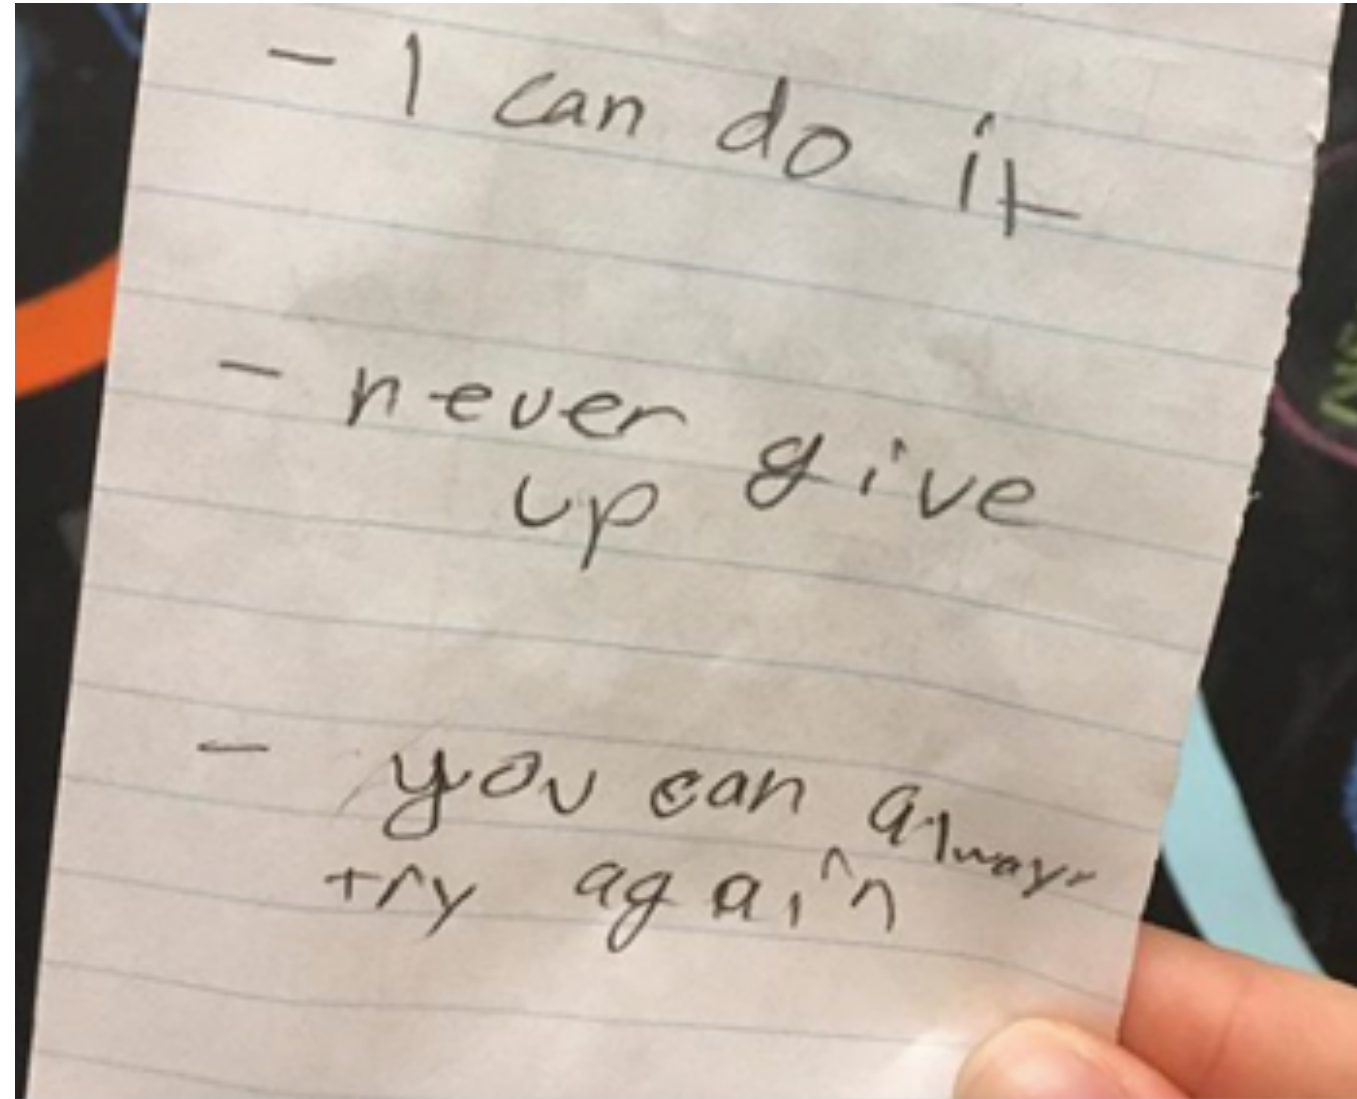 - I can do it
- never give
up
- you can always
try again